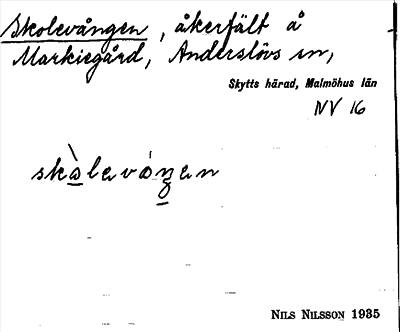 Skolevången, åkerfält å
Markiegård, Anderslövs sn,
Skytts härad, Malmöhus län
NV 16
NILS NILSSON 1935